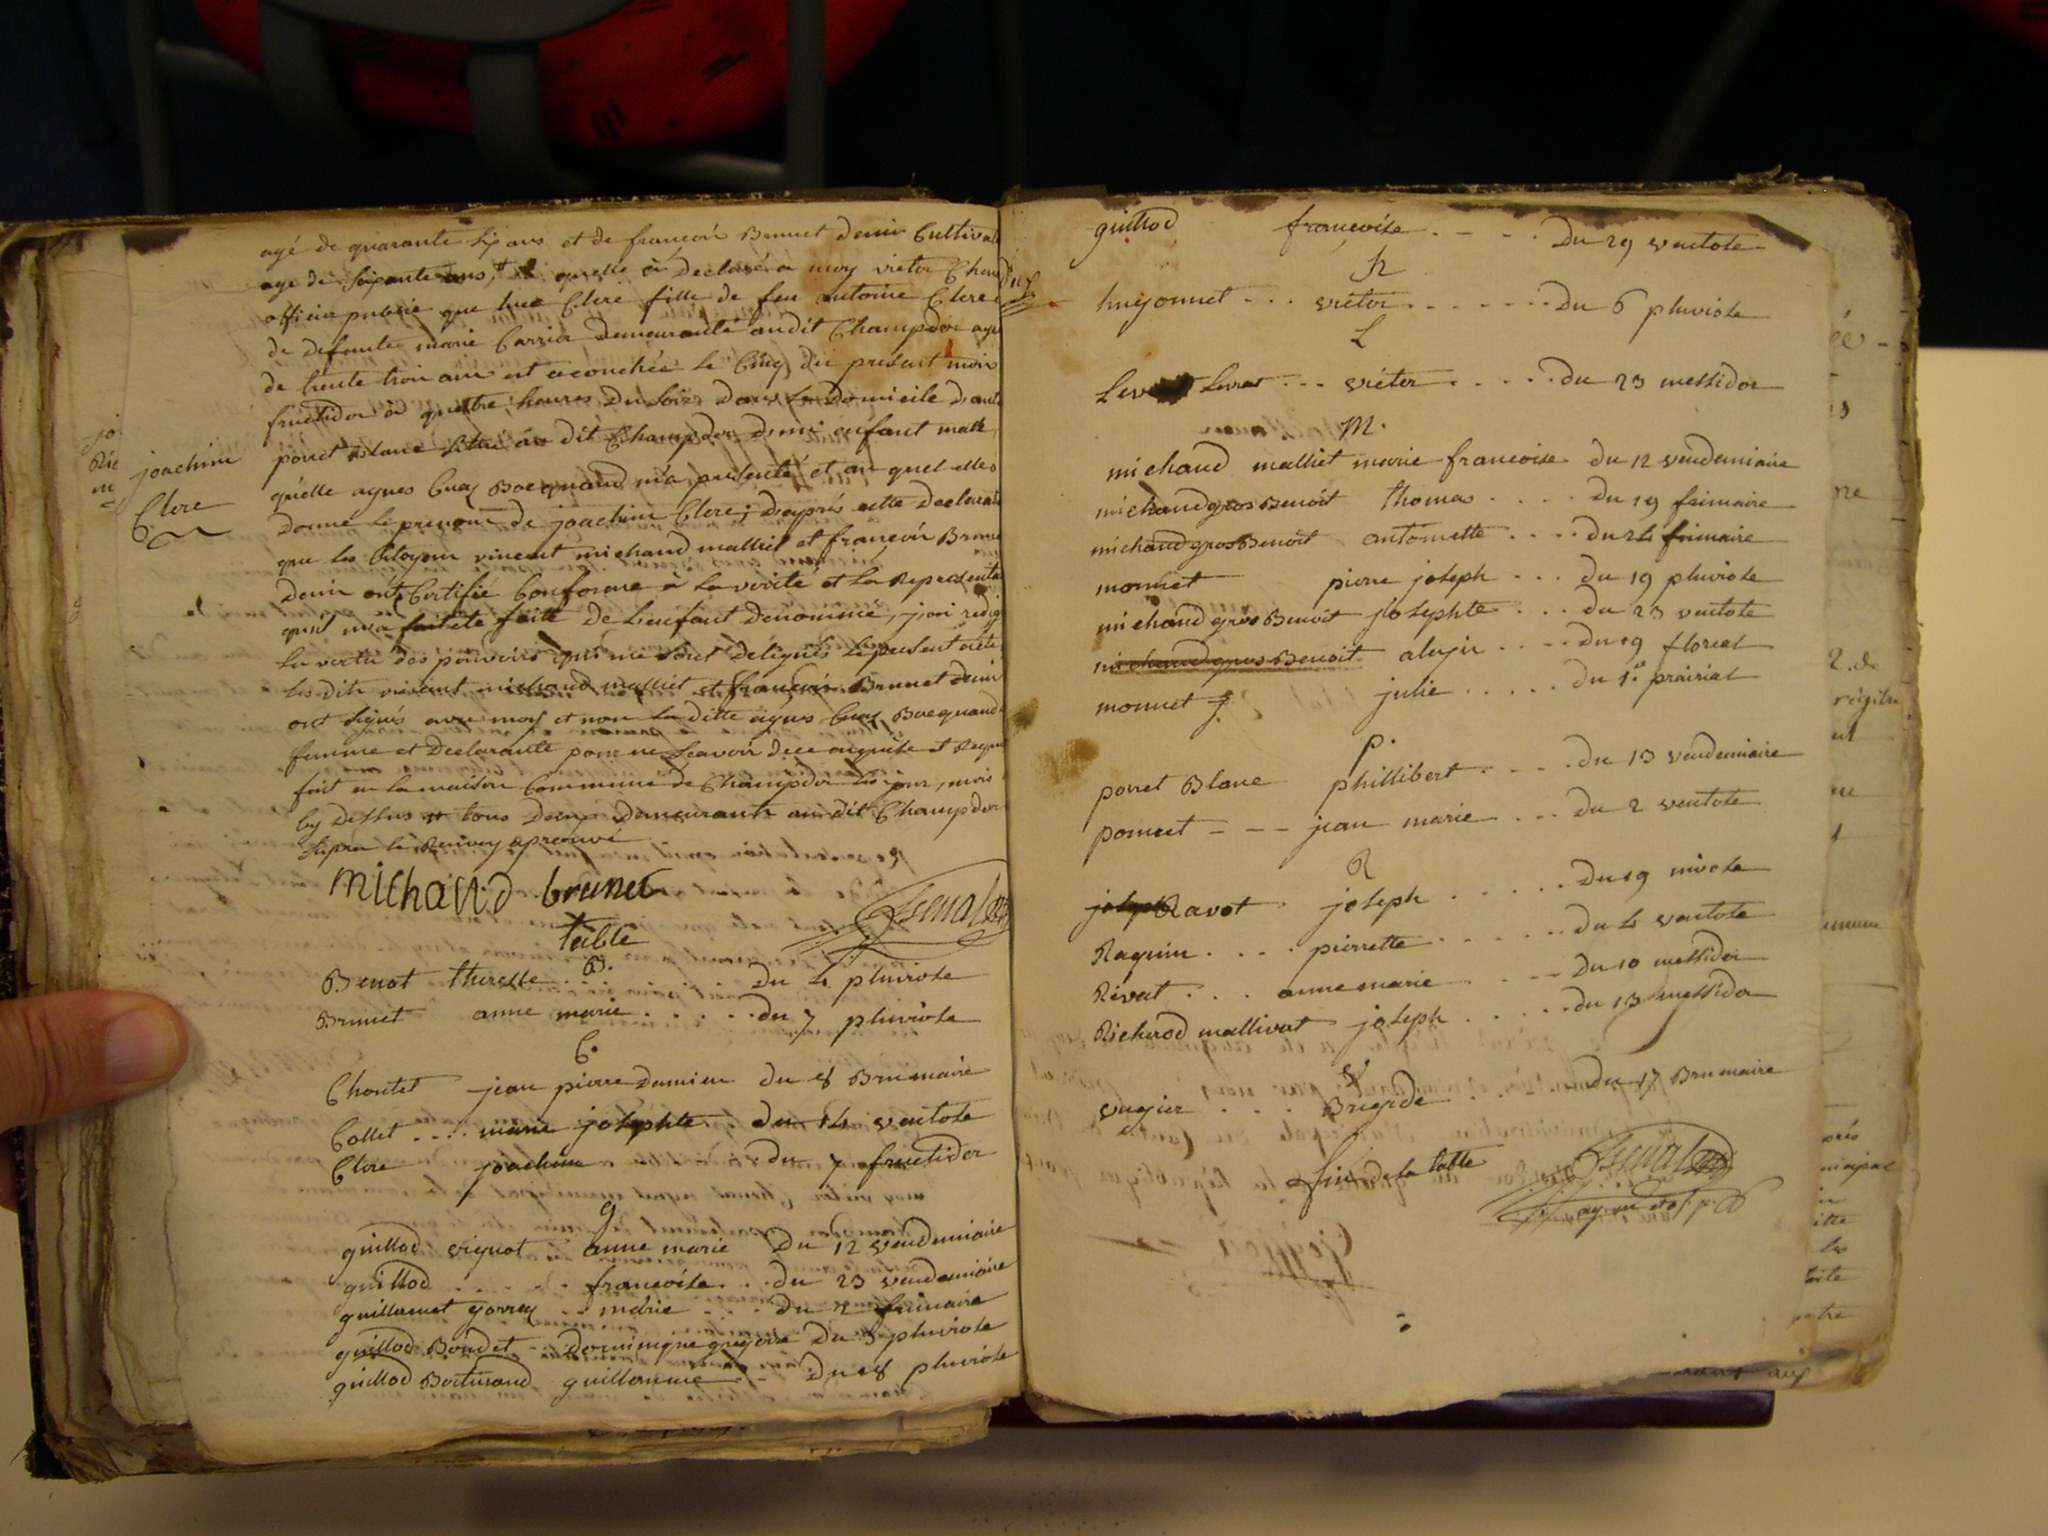 joachim
Clere
agé de quarante six ans et de françois Brunet demi Cultivat
age de soixante ans, quelle à declaré a moy victor Chen
officier public que Clere fille de feu antoine Clere
de defunte marie Carrier demeurante audit Champdor agé
de trente trois ans est acouchée le Cinq du present mois
fructidor à quatre heures du soir dans le domicile
ponet Blanc situé au dit Champdor d'un enfant male
qu'elle agnes Cuaz Bocquand m'a presenté et au quel elle
donné le prenom de joachim Clere; d'après cette declarat
que les Citoyens vincent michaud malliet et françois Brunet
demi ont Certifié Conforme à la verité et la representa
qu'il m'a été faitte de l'enfant denommé, j'ai redig
En vertu des pouvoirs qui me sont delegués le present acte
les dits vincent michaud malliet et françois Brunet demi
ont signés avec moy et non la ditte agnes Cuaz Bocquand
femme et declarante pour ne scavoir de ce enquise et requi
fait en la maison Commune de Champdor les jour, mois
cy dessus et tous demeurants au dit Champdor
le renvoy aprouvé
michaud brunet
table
B.
Benot theresse . . . . . du 4 pluviose
Brunet anne marie . . . . . du 7 pluviose
C.
Choutet jean pierre Damien du 8 Brumaire
Collet . . . . marie josephte du 14 ventose
Clere joachim . . . . du 7 fructidor
g
guillod vignot anne marie du 12 vendemiaire
guillod . . . . . francoise . . . du 23 vendemiaire
guillaumet gorrey . . marie . . . . du 2 frimaire
guillod Bondet - dominique gregoire du 3 pluviose
guillod Bertinand guillaume . . du 8 pluviose
guillod francoise . - - . du 29 ventose
h
hugonnet . . . victor . . . . . . . du 6 pluviose
L
Levrat . . . victor . . . . . du 23 messidor
M.
michaud malliet marie francoise du 12 vendemiaire
michaud gros Benoit thomas . . . . du 19 frimaire
michaud gros Benoit antoinette . . . . du 24 frimaire
monnet pierre joseph . . . du 19 pluviose
michaud gros Benoit josephte . . . du 23 ventose
michaud gros Benoit alexis . . . . du 19 floreal
monnet julie . . . . . du 1er prairial
p.
ponet Blanc phillibert . . . . du 13 vendemiaire
poncet - - - jean marie . . . du 2 ventose
R
Ravot joseph . . . . . du 19 nivose
Raquin . . . . pierrette . . . . . . du 4 ventose
Rivat . . . anne marie . - - du 10 messidor
Richerod mallivat joseph . . . . . . du 13 messidor
V
vugier . . . . Brigide . . . . . du 17 Brumaire
fin de la table